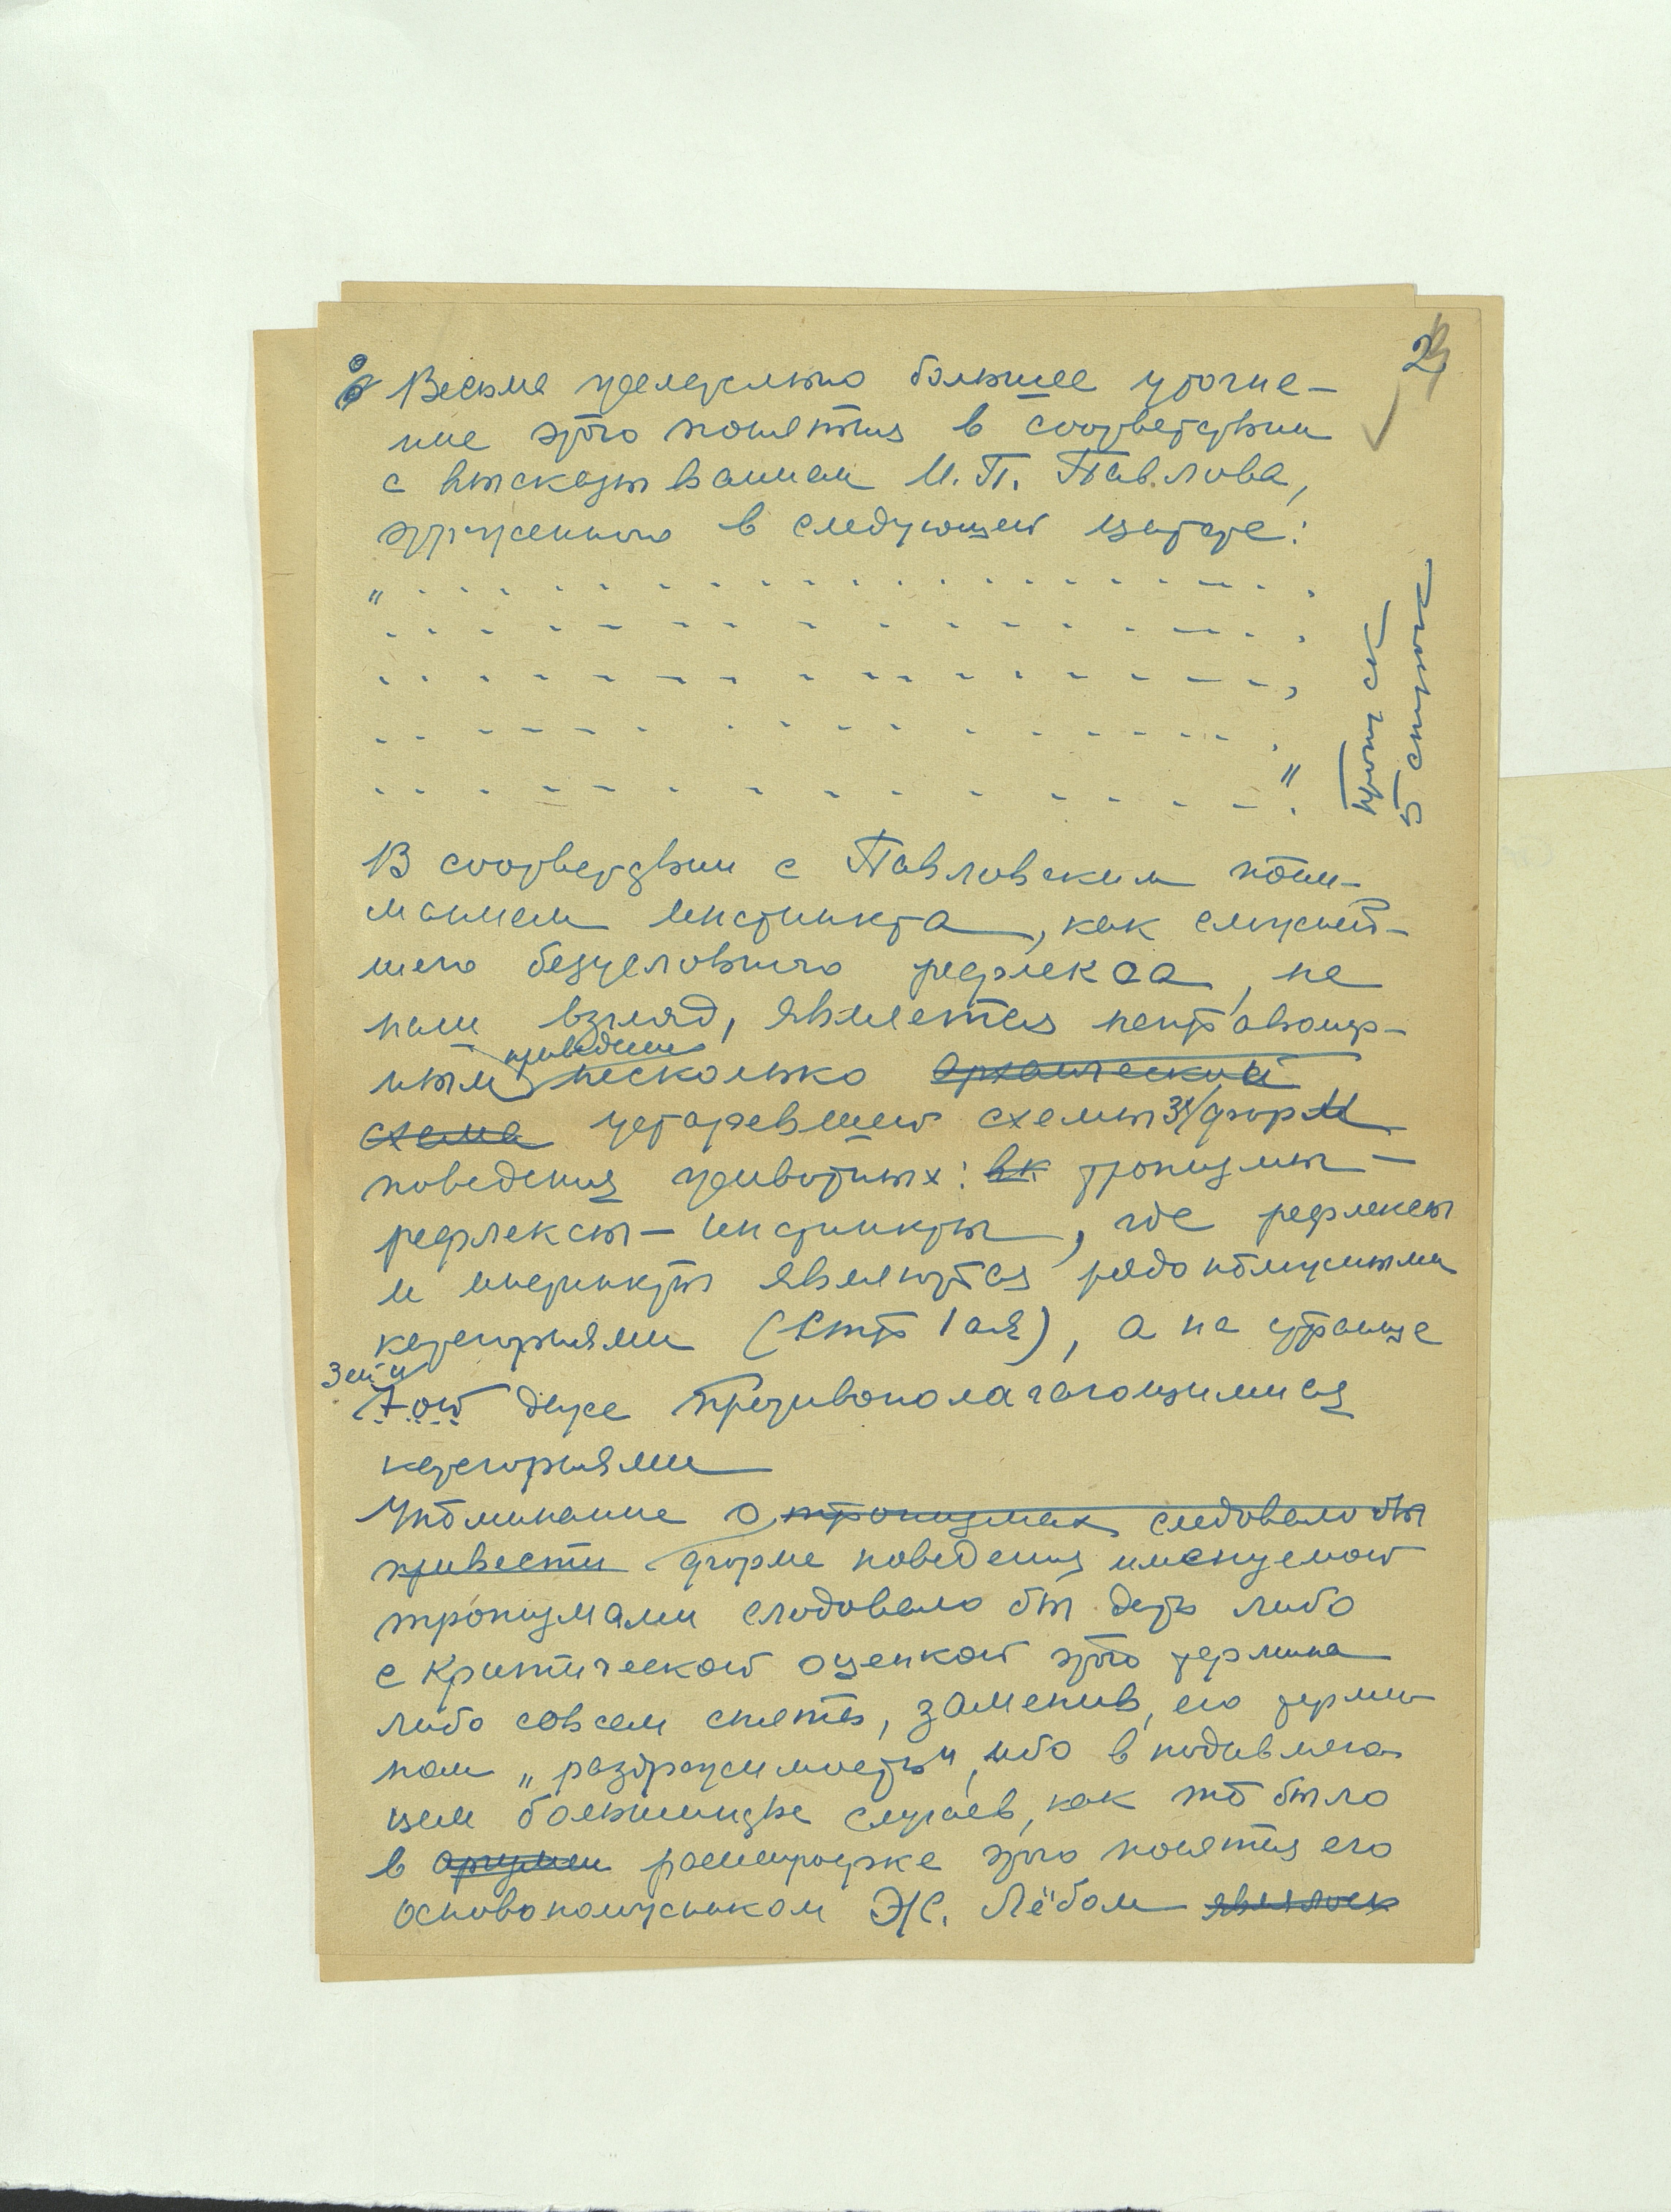 2
Весьма желательно большее уточне-
ние этого понятия в соответствии
с высказыванием И. П. Павлова,
в следующей цитате:
" . . . . . . . . . . . . . . . . . . . .
. . . . . . . . . . . . . . . . . . . .
. . . . . . . . . . . . . . . . . . . .
. . . . . . . . . . . . . . . . . . . .
. . . . . . . . . . . . . . . . . . . . "
Пропуск
5 строк
В соответствии с Павловским пони-
манием инстинкта, как сложней-
шего безусловного рефлекса, на
наш взгляд, является неправиль-
ным приведение несколько архаический
схема устаревшей схемы 3х форм
поведения животных: вк тропизмы —
рефлексы — инстинкты, где рефлексы
и инстинкты являются рядоположными
категориями (Стр 1ая), а на странице
3ей и
7ой даже противополагающимися
категориями
Упоминание о тропизмах следовало бы
привести форме поведения именуемой
тропизмами следовало бы дать либо
с критической оценкой этого термина
либо совсем снять, заменив его терми-
ном „раздражимость", ибо в подавляю
щем большинстве случаев, как то было
в разработке этого понятия его
основоположником Ж. Лёбом являлся